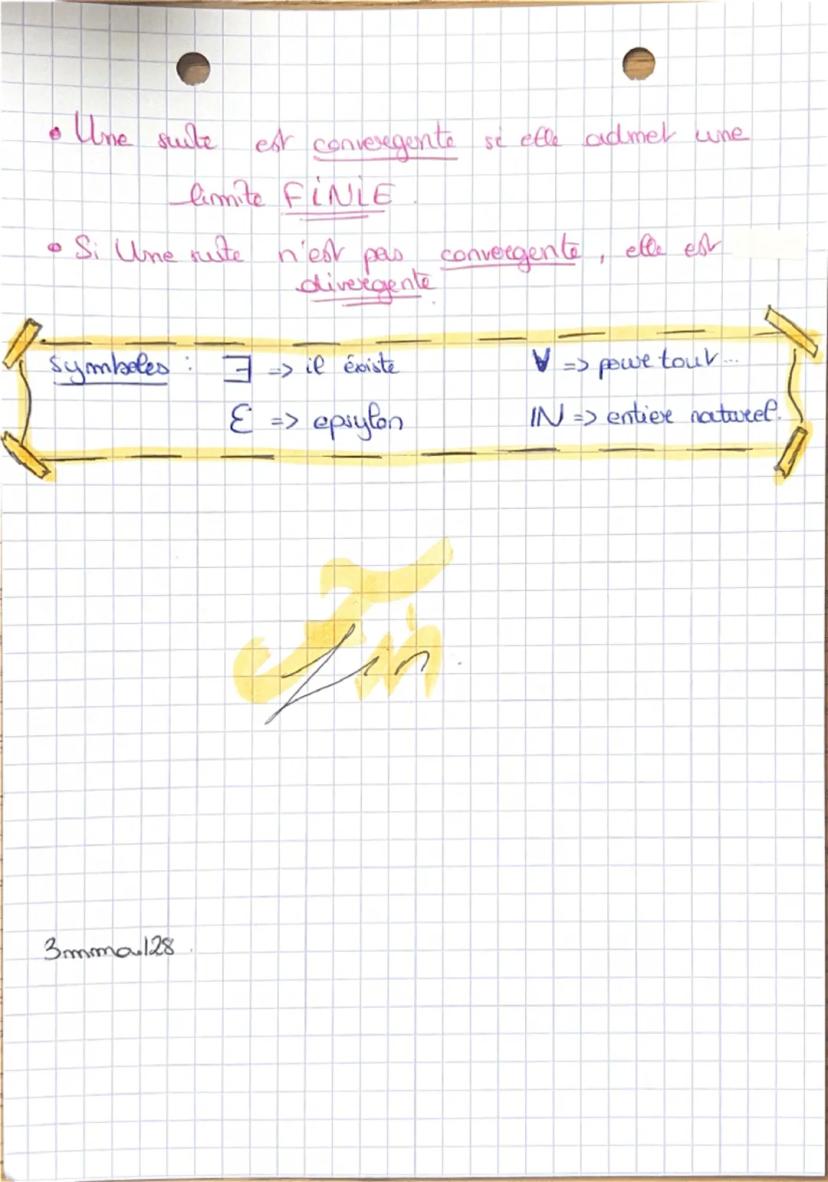 • Une suite est convergente si elle admet une
limite FiNiE.
• Si Une suite n'est pas convergente, elle est
divergente.
Symboles : ∃ => il éxiste ∀ => pour tout...
ε => epsylon IN => entier naturel.
Fin
fin.
3mma128